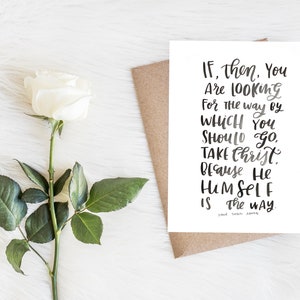 IF, then, YOU
ARE LOOKING
FOR the WAY BY
WHICH YOU
SHOULD GO,
TAKE Christ,
BECAUSE HE
HIMSELF
IS the WAY.